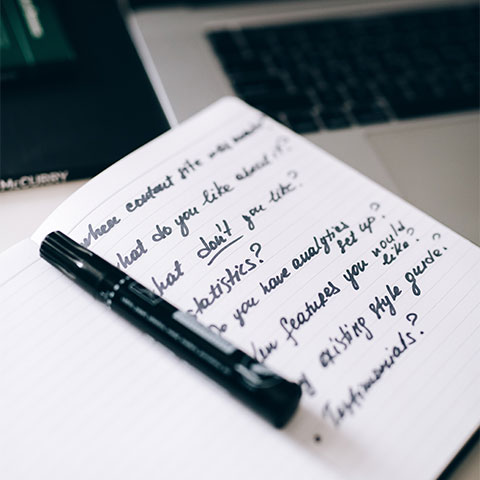 McCURRY
when contact site was
hat do you like about it?
hat don't you like?
statistics?
Do you have analytics
set up?
features you would
like?
existing style guide?
Testimonials?